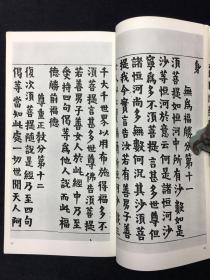 身
無為福勝分第十一
須菩提如恒河中所有沙數如是
沙等恒河於意云何是諸恒河沙
寧為多不須菩提言甚多世尊但
諸恒河尚多無數何況其沙須菩
提我今實言告汝若有善男子善
千大千世界以用布施得福多不
須菩提言甚多世尊佛告須菩提
若善男子善女人於此經中乃至
受持四句偈等為他人說而此福
德勝前福德
尊重正教分第十二
復次須菩提隨說是經乃至四句
偈等當知此處一切世間天人阿